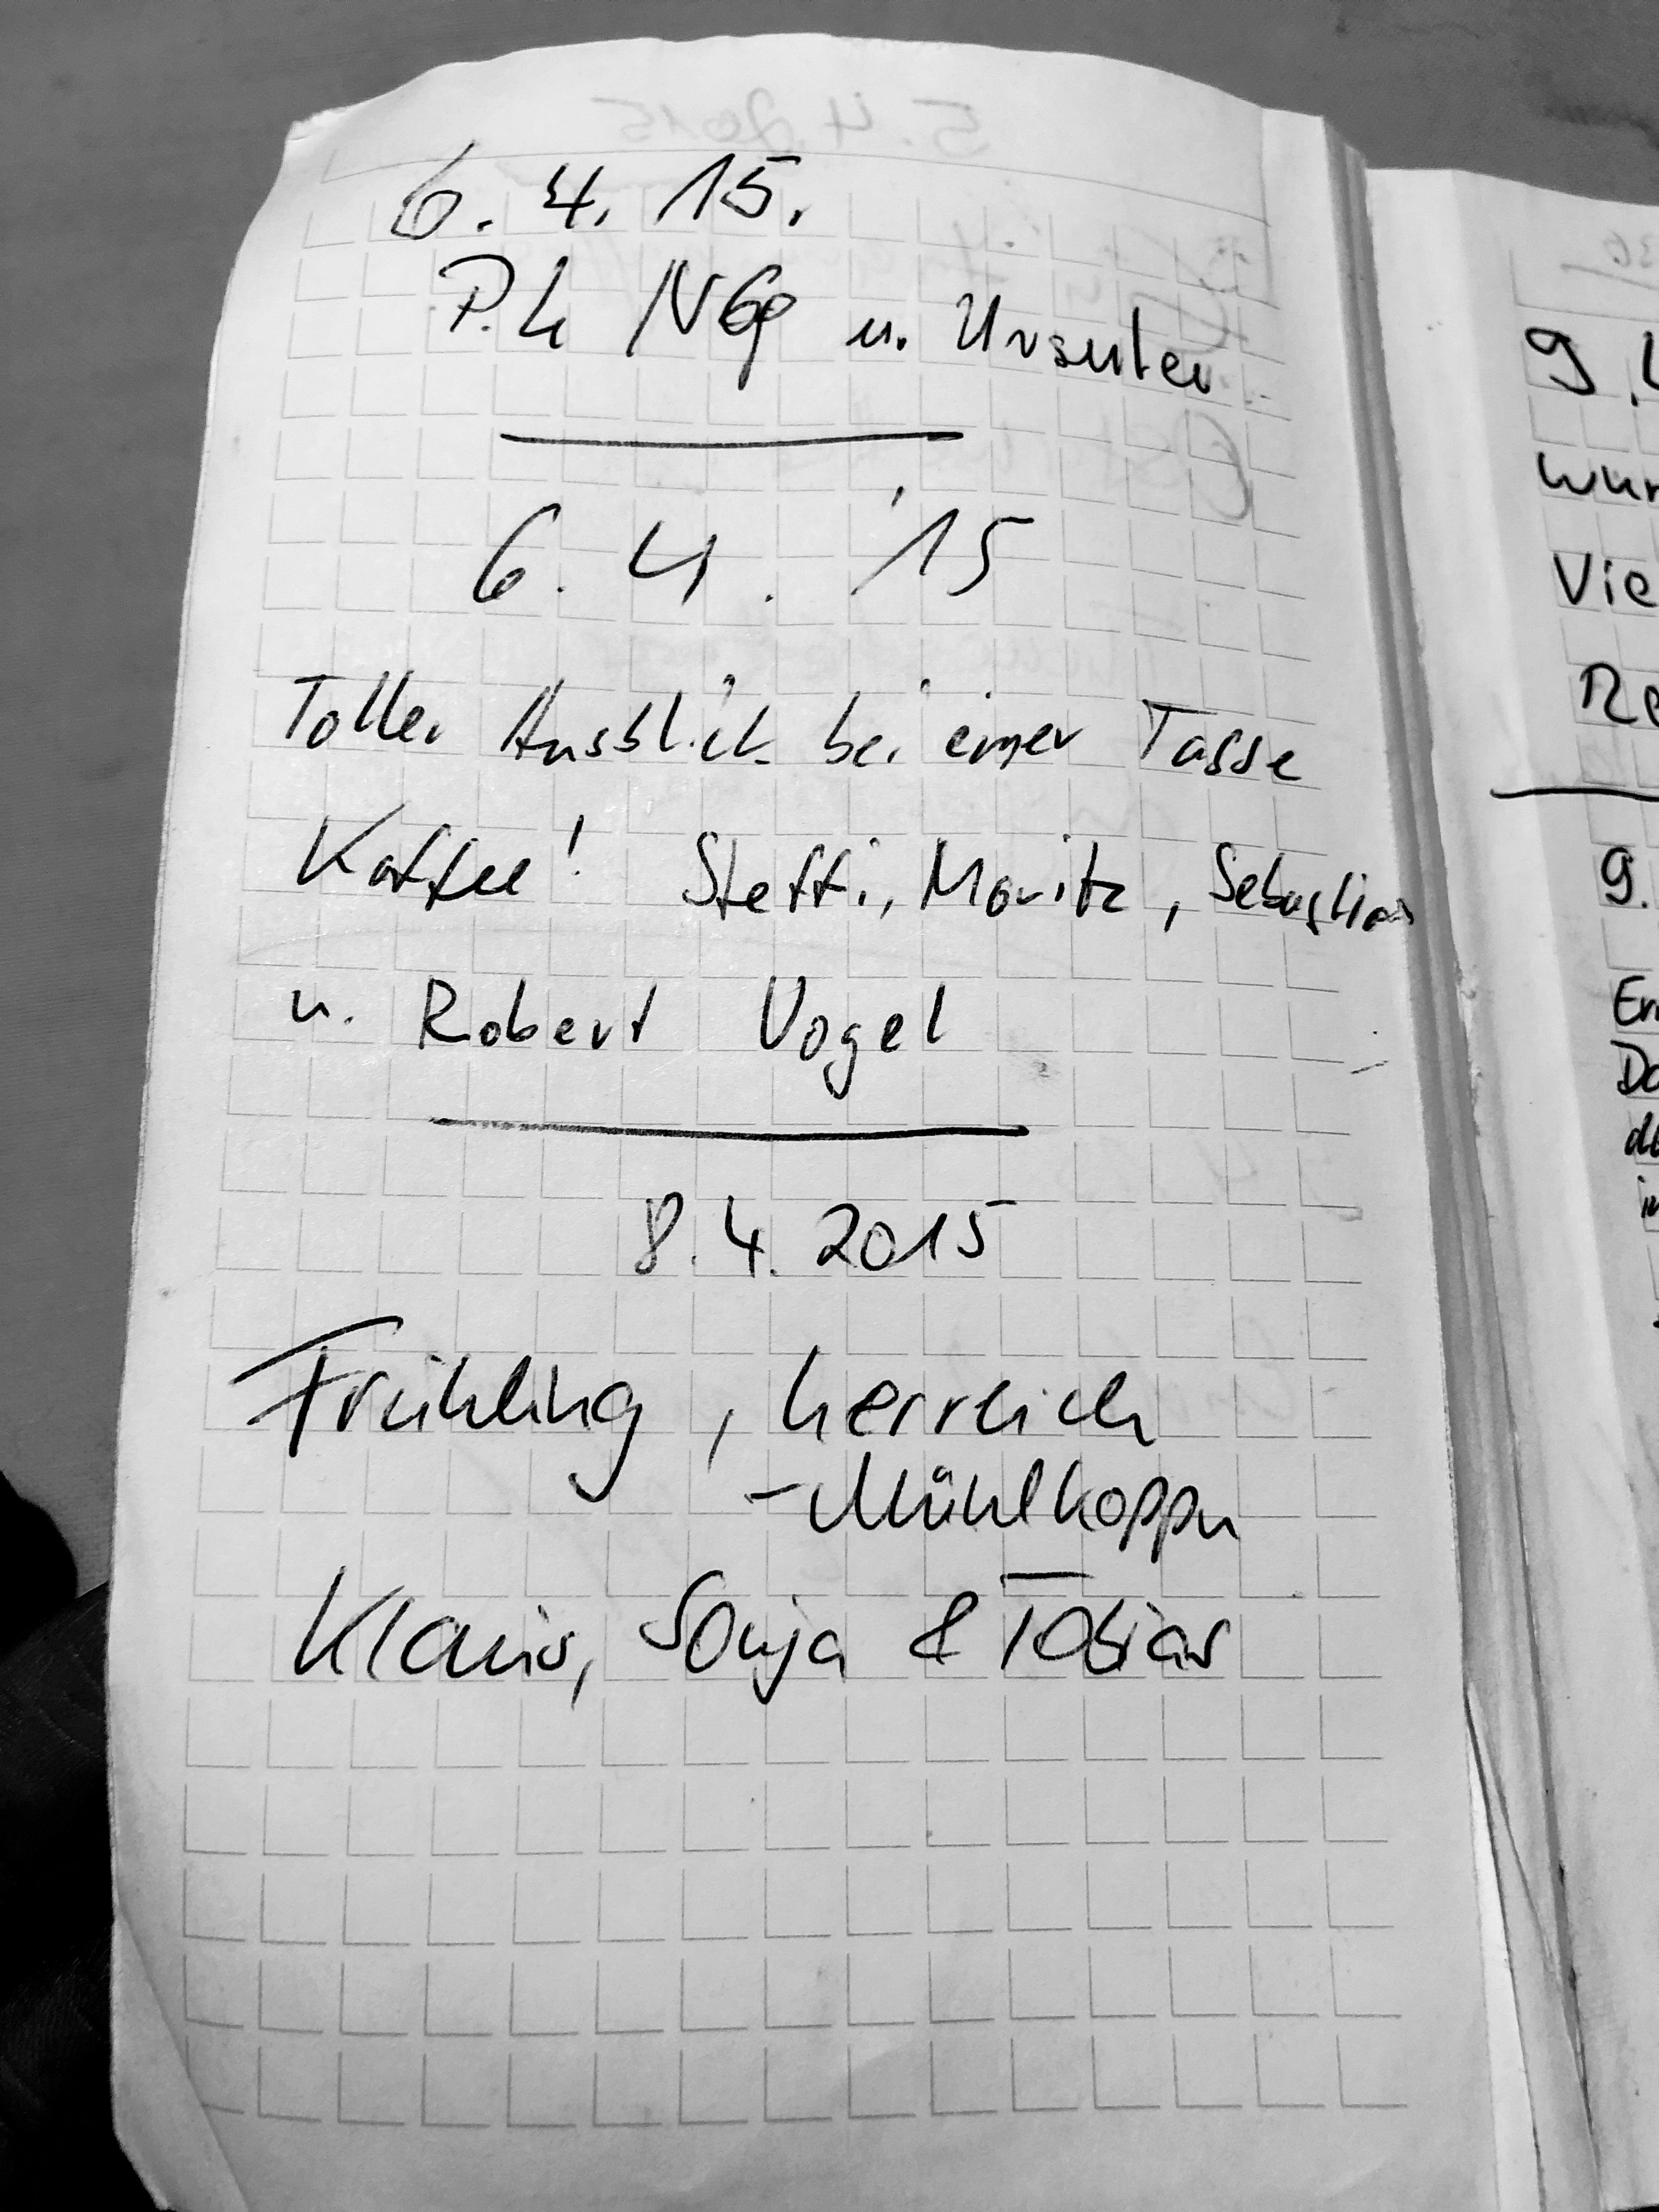 6.4.15.
u.
6.4.'15
Toller Ausblick bei einer Tasse
Kaffee! Steffi, Moritz, Sebastian
u. Robert Vogel
8.4.2015
Frühling, herrlich
-Mühlkoppn
Klaus, Sonja & Tobias
5.4.2015
9.
Vie
9.